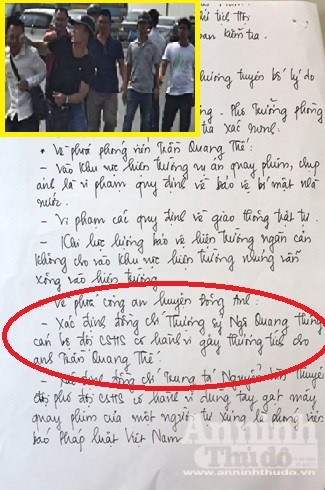 tịch Thị
ban kiểm tra.
Chương tuyên bố lý do
- Phó Trưởng phòng
xác minh:
* Về phía phóng viên Trần Quang Thế:
- vào khu vực hiện trường vụ án quay phim, chụp
ảnh là vi phạm quy định về bảo vệ bí mật nhà
nước.
- Vi phạm các quy định về giao thông trật tự.
- Khi lực lượng bảo vệ hiện trường ngăn cản
không cho vào khu vực hiện trường nhưng vẫn
xông vào hiện trường.
Về phía công an huyện Đông Anh:
- Xác định đồng chí Thượng sỹ Ngô Quang Hưng
cán bộ đội CSHS có hành vi gây thương tích cho
anh Trần Quang Thế.
- Xác định đồng chí Trung tá Nguyễn Văn Thuyên
đội phó đội CSHS có hành vi dùng tay gạt máy
quay phim của một người tự xưng là phóng viên
báo Pháp luật Việt Nam
An ninh
Thủ đô
www.anninhthudo.vn